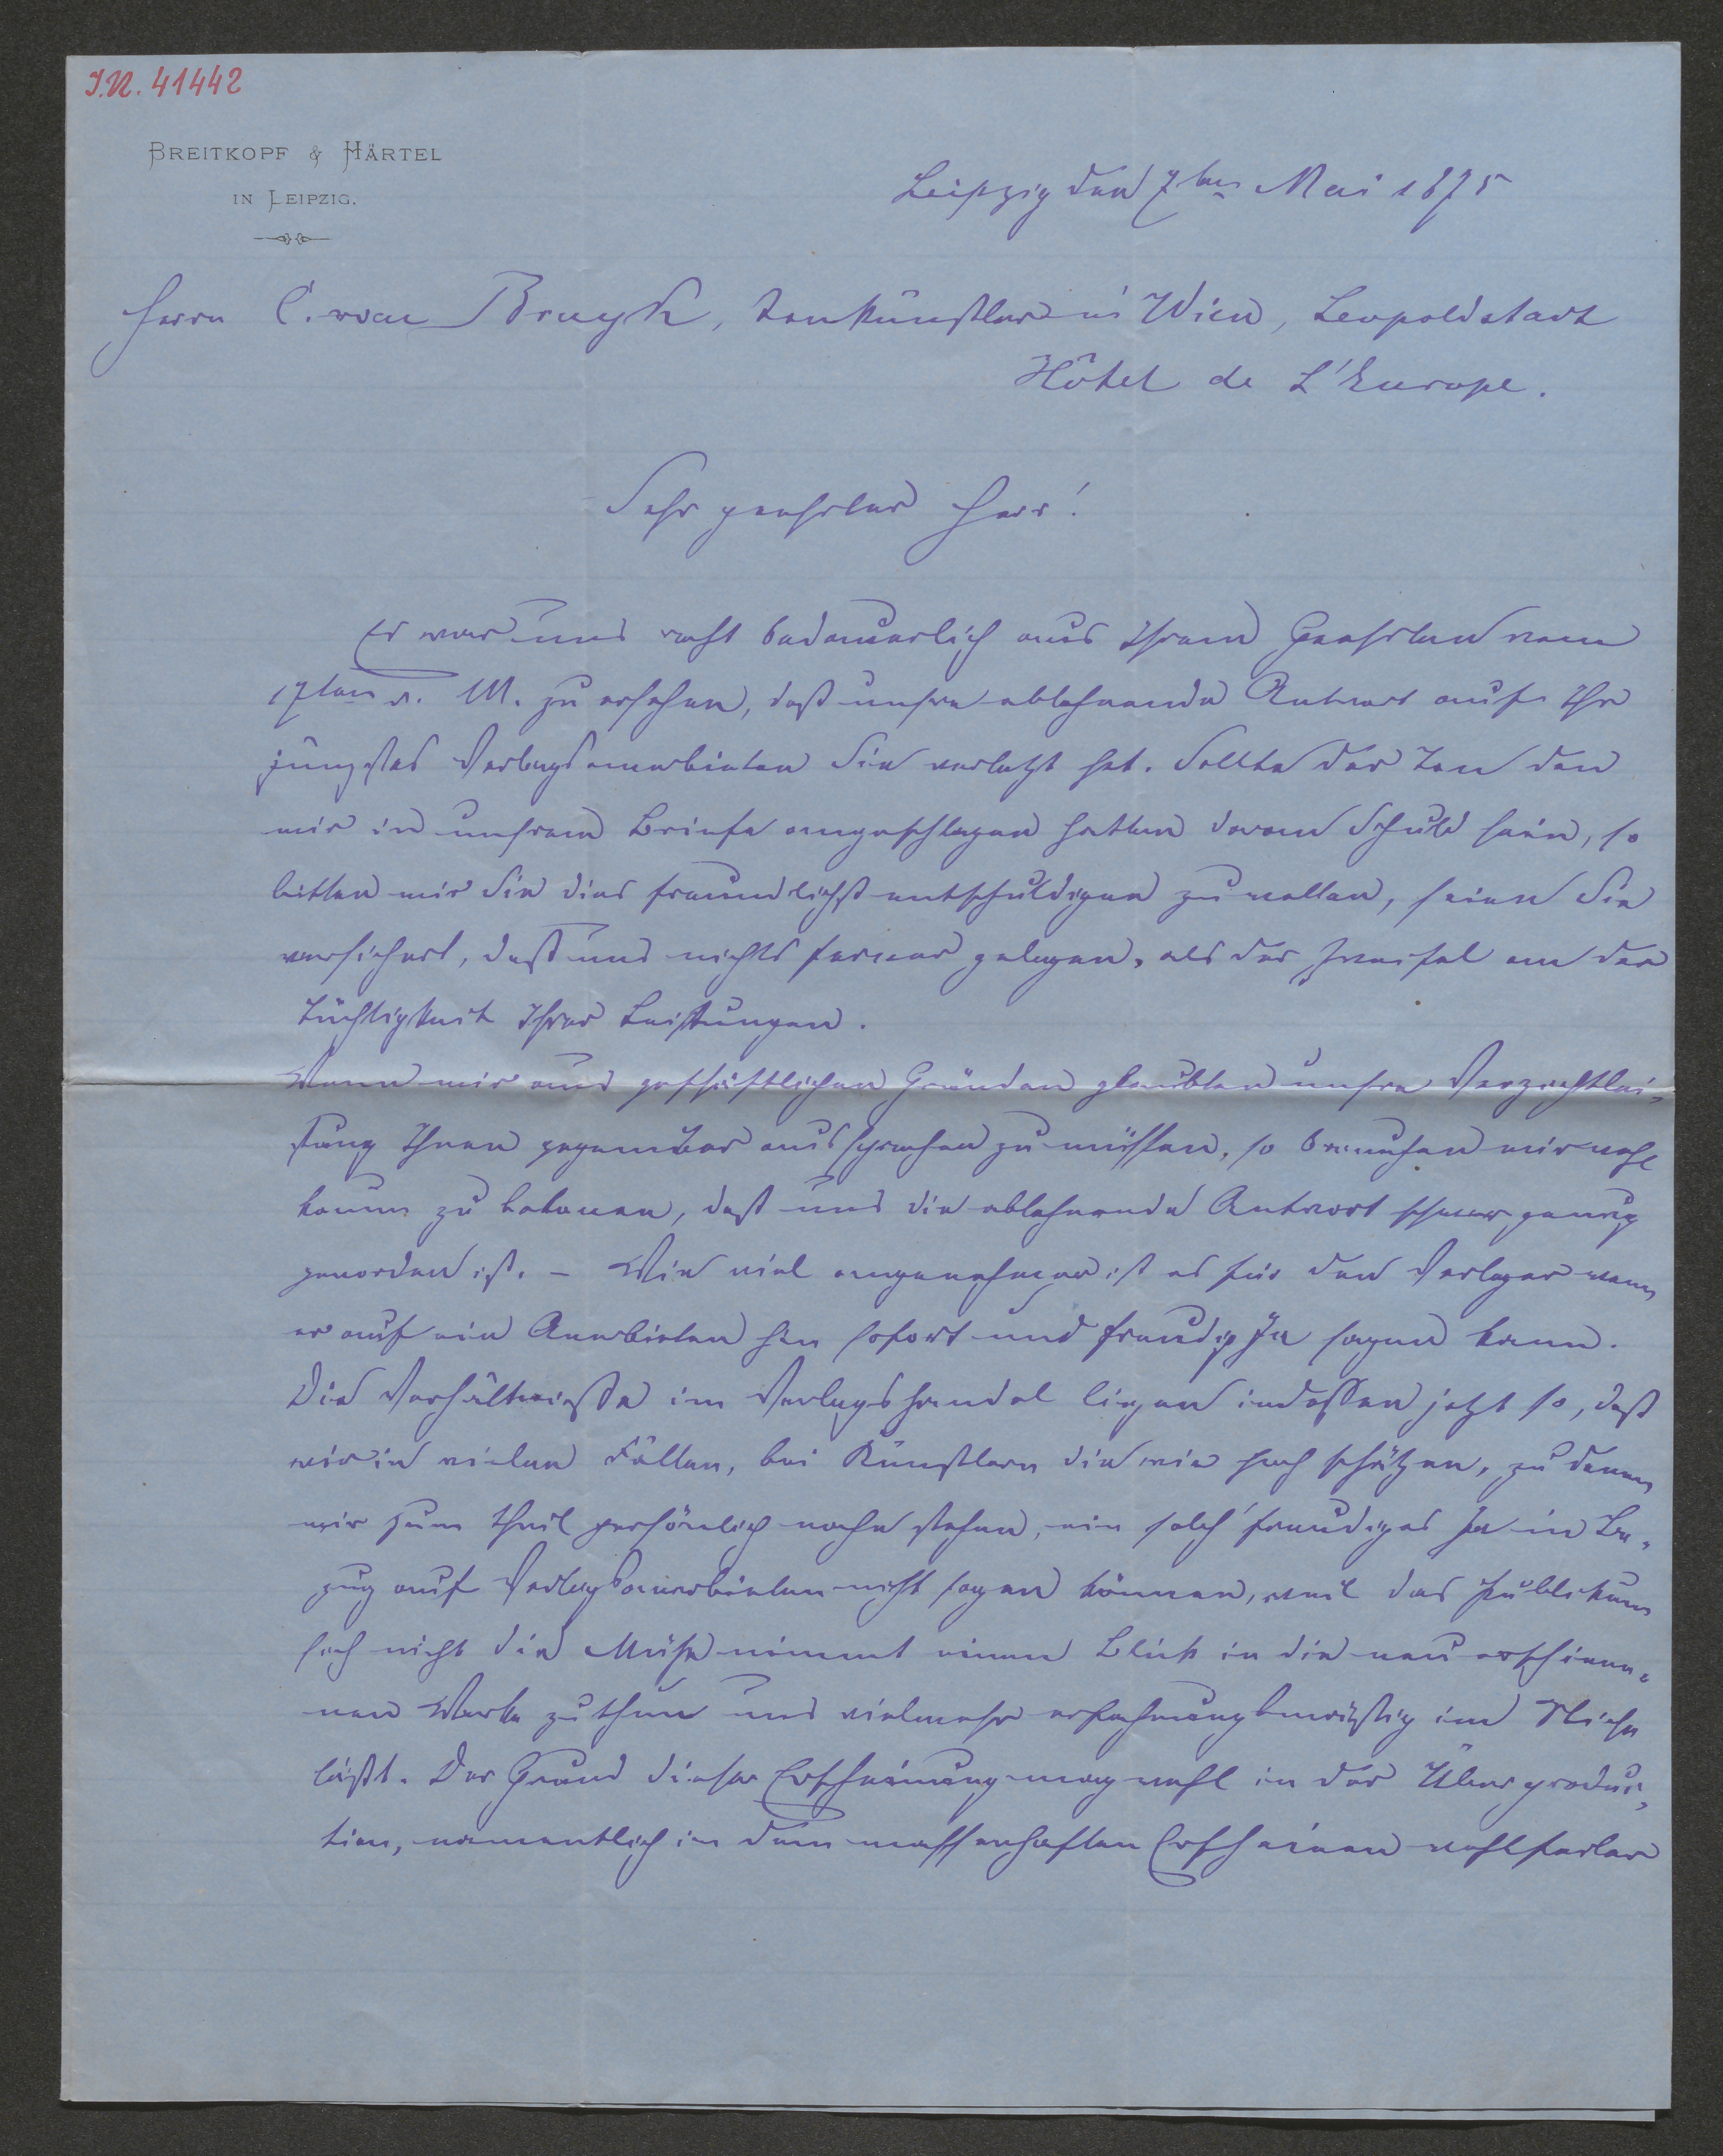 I.N. 41442
BREITKOPF & HÄRTEL
IN LEIPZIG.
Leipzig den 7ten Mai 1875
Herrn C. van Bruyk, Tonkünstler in Wien, Leopoldstadt
Hôtel de L'Europe.
Sehr geehrter Herr!
Es war uns recht bedauerlich aus Ihrem Geehrten vom
17ten v. M. zu ersehen, daß unsre ablehnende Antwort auf Ihr
jüngstes Verlagsanerbieten Sie verletzt hat. Sollte der Ton den
wir in unsrem Briefe angeschlagen hatten daran Schuld sein, so
bitten wir Sie dies freundlichst entschuldigen zu wollen, seien Sie
versichert, daß uns nichts ferner gelegen, als der Zweifel an der
Tüchtigkeit Ihrer Leistungen.
Wenn wir aus geschäftlichen Gründen glaubten unsre Verzichtlei-
stung Ihnen gegenüber aussprechen zu müssen, so brauchen wir wohl
kaum zu betonen, daß uns die ablehnende Antwort schwer genug
geworden ist. – Wie viel angenehmer ist es für den Verleger wenn
er auf ein Anerbieten hin sofort und freudig Ja sagen kann.
Die Verhältnisse im Verlagshandel liegen indessen jetzt so, daß
wir in vielen Fällen, bei Künstlern die wir hoch schätzen, zu denen
wir zum theil persönlich nahe stehen, ein solch' freudiges Ja in Be-
zug auf Verlagsanerbieten nicht sagen können, weil das Publikum
sich nicht die Mühe nimmt einen Blick in die neu erschiene-
nen Werke zu thun und vielmehr erfahrungsmäßig im Stiche
läßt. Der Grund dieser Erscheinung mag wohl in der Überproduc-
tion, namentlich in dem massenhaften Erscheinen wohlfeiler